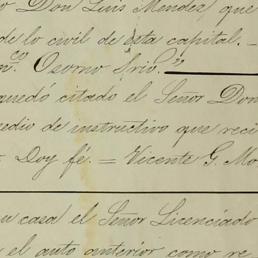 Don Luis Mendez que
de lo civil de esta capital. -
Osorno Srio.
quedó citado el Señor Don
medio de instructivo que reci
- Doy fé. = Vicente G. Mo
su casa el Señor Licenciado
el auto anterior como re